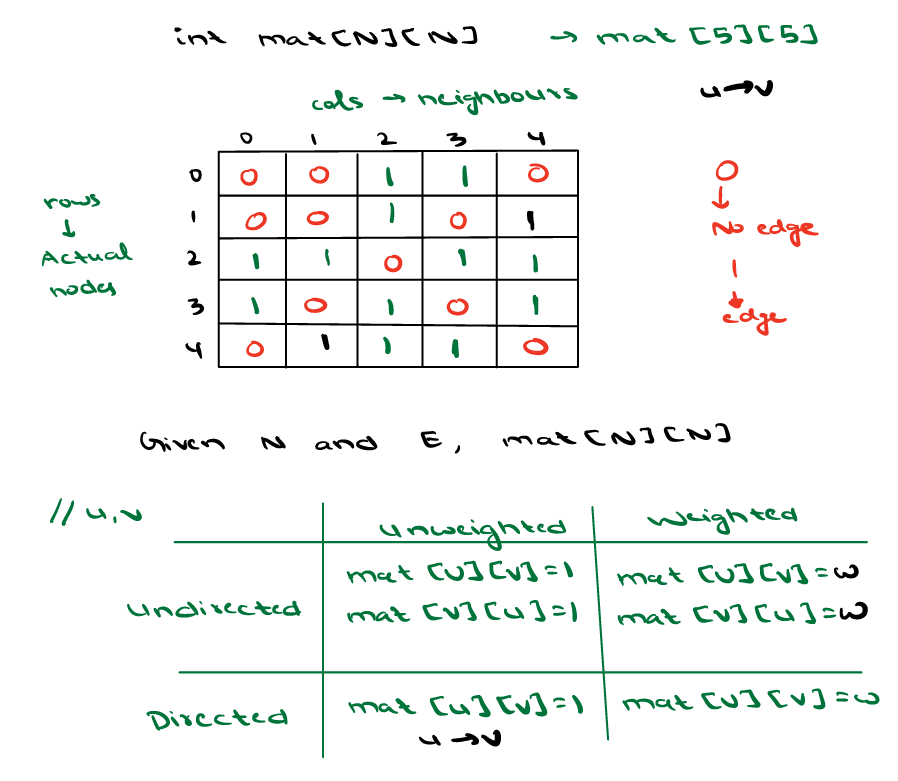 int mat[N][N] → mat [5][5]
cols → neighbours
u→v
0 1 2 3 4
0 0 0 1 1 0
1 0 0 1 0 1
2 1 1 0 1 1
3 1 0 1 0 1
4 0 1 1 1 0
rows
↓
Actual
nodes
0
↓
No edge
1
↓
edge
Given N and E, mat[N][N]
// u,v
unweighted weighted
undirected
mat [u][v]=1
mat [v][u]=1
mat [u][v]=w
mat [v][u]=w
Directed
mat [u][v]=1
u→v
mat [u][v]=w